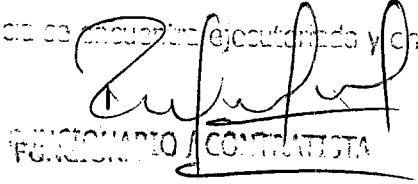 se encuentra ejecutoriada y en
FUNCIONARIO / CONTRATISTA